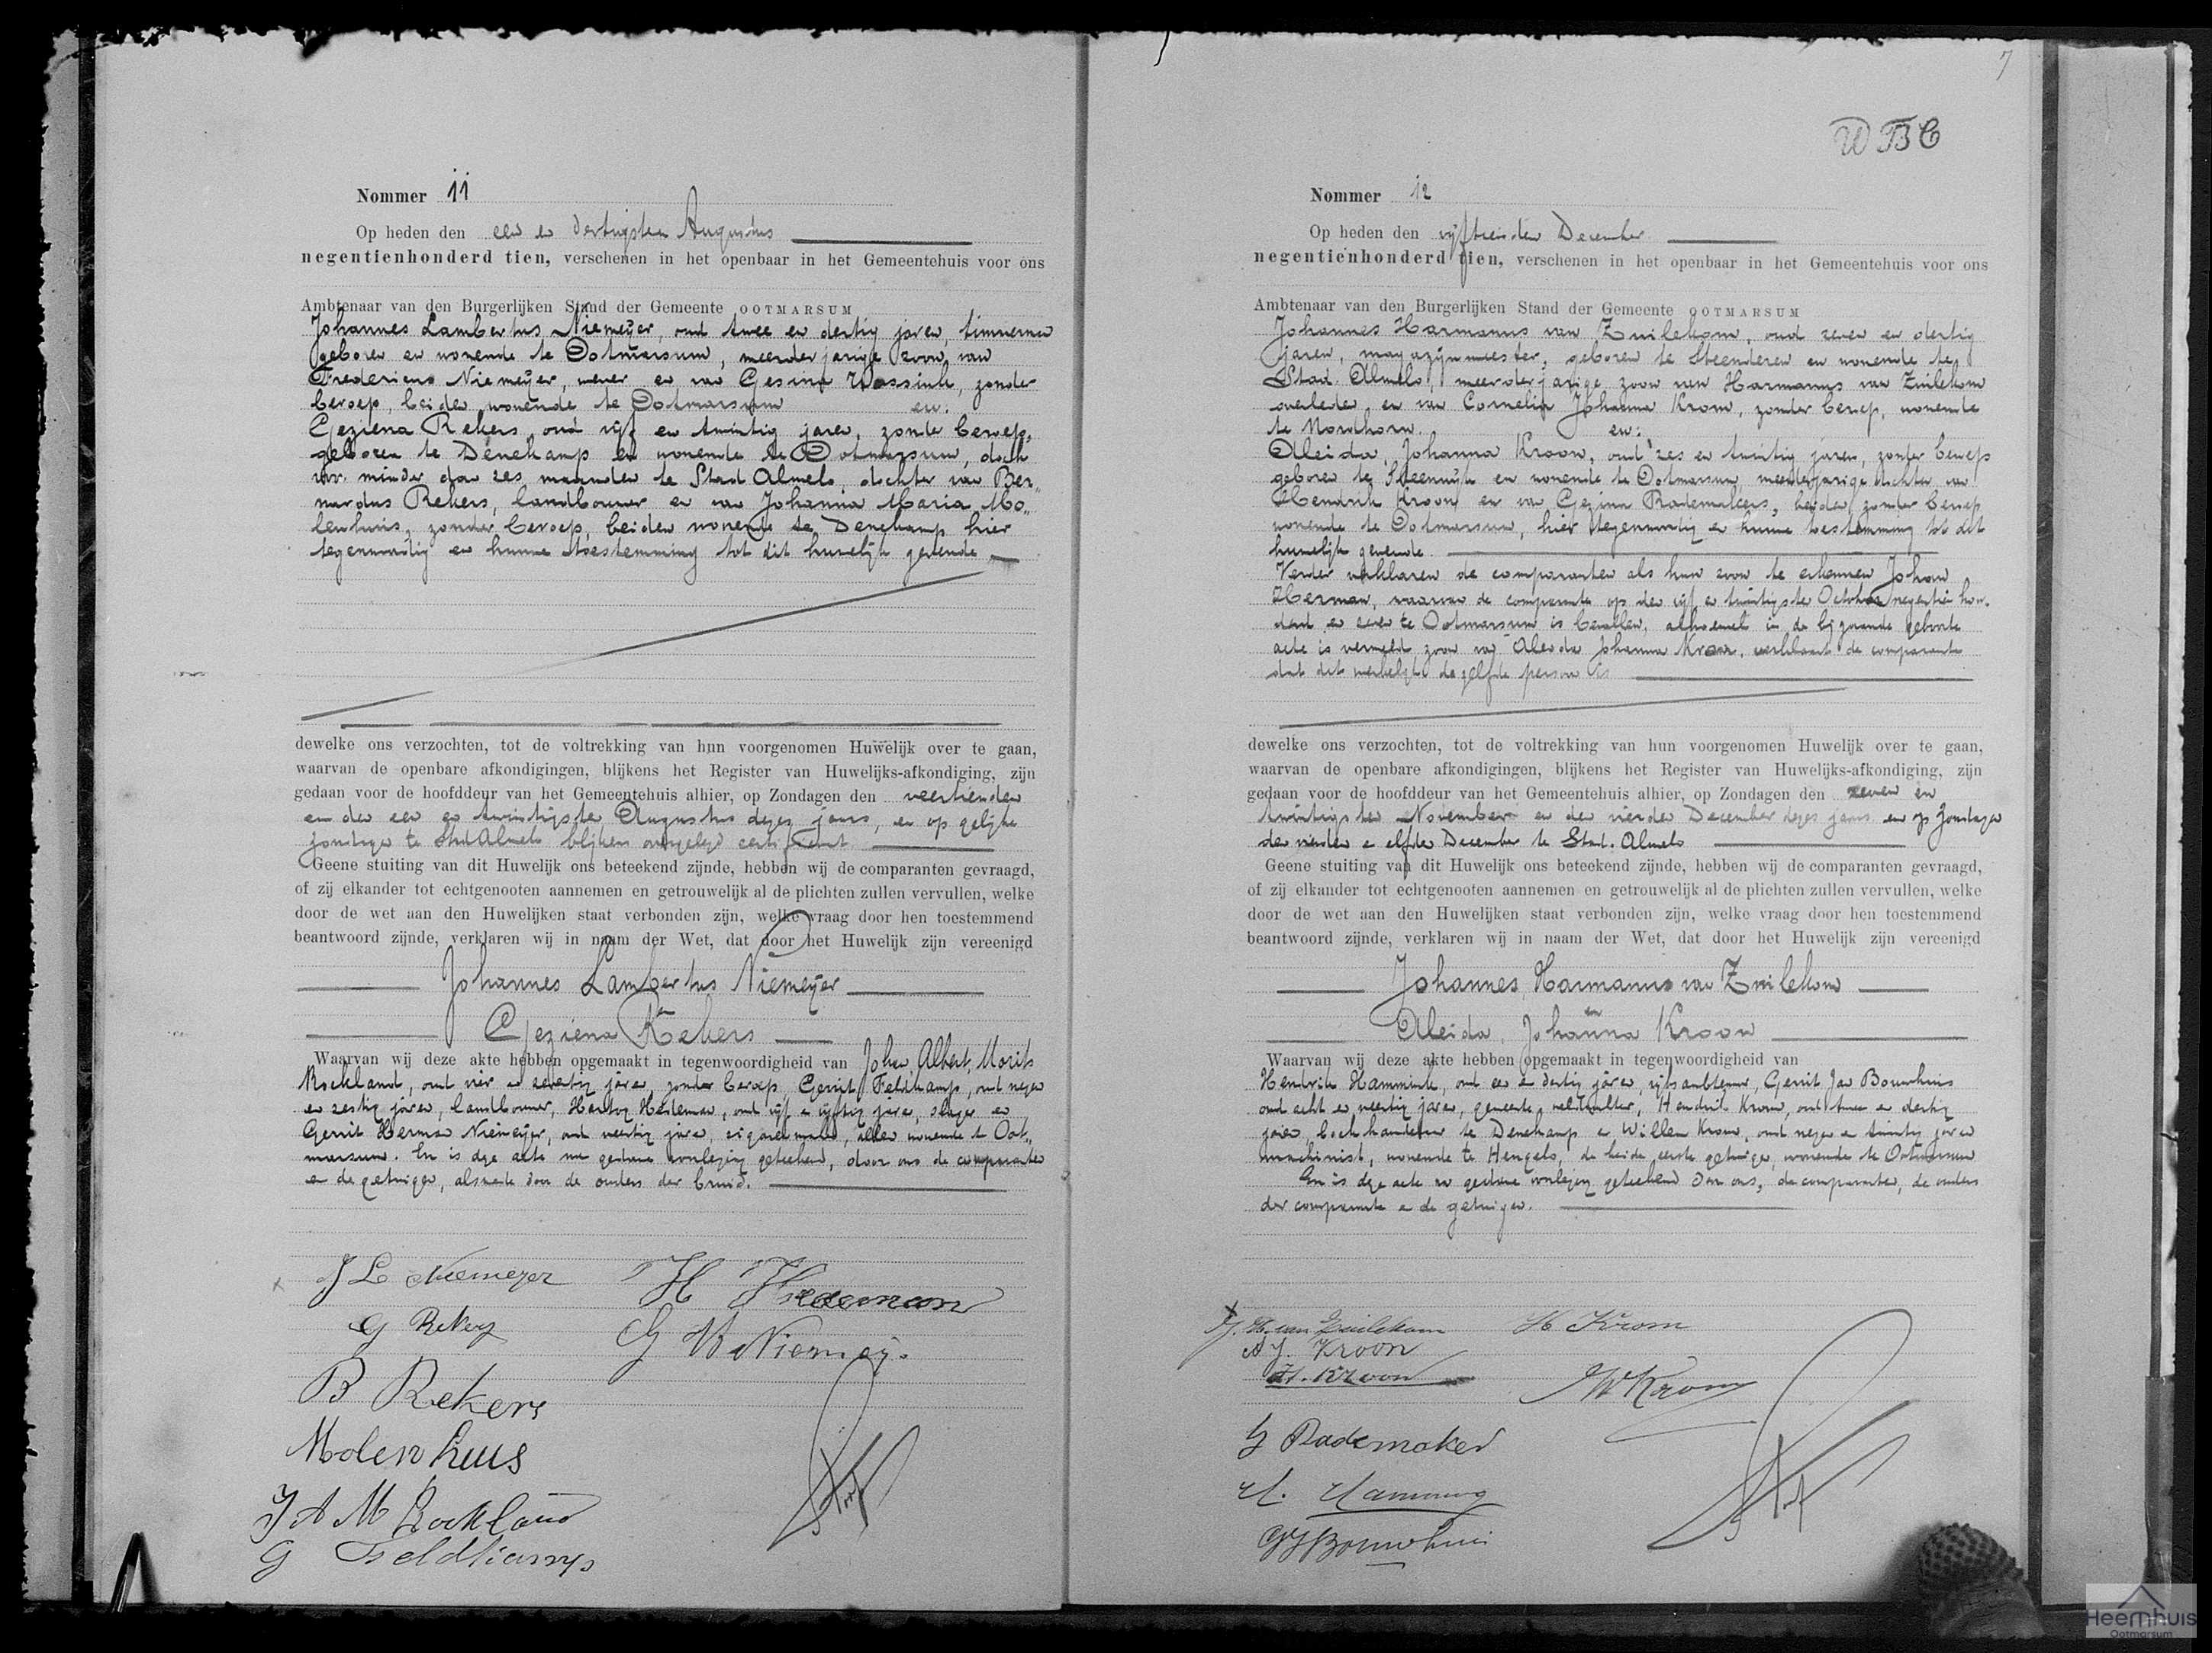 Nommer 11
Op heden den een en dertigsten Augustus
negentienhonderd tien, verschenen in het openbaar in het Gemeentehuis voor ons
Ambtenaar van den Burgerlijken Stand der Gemeente OOTMARSUM
Johannes Lambertus Niemeijer, oud twee en dertig jaren, timmerman
geboren en wonende te Ootmarsum, meerderjarige zoon van
Fredericus Niemeijer, wever en van Gesina Wassink, zonder
beroep, beiden wonende te Ootmarsum en:
Geziena Rekers, oud vijf en twintig jaren, zonder beroep,
geboren te Denekamp en wonende te Ootmarsum, doch
voor minder dan zes maanden te Stad Almelo, dochter van Ber„
nardus Rekers, landbouwer en van Johanna Maria Mo„
lenhuis, zonder beroep, beiden wonende te Denekamp hier
tegenwoordig en hunne toestemming tot dit huwelijk gevende
dewelke ons verzochten, tot de voltrekking van hun voorgenomen Huwelijk over te gaan,
waarvan de openbare afkondigingen, blijkens het Register van Huwelijks-afkondiging, zijn
gedaan voor de hoofddeur van het Gemeentehuis alhier, op Zondagen den veertienden
en den een en twintigsten Augustus dezes jaars, en op gelijke
zondagen te Stad Almelo blijkens overgelegd certificaat
Geene stuiting van dit Huwelijk ons beteekend zijnde, hebben wij de comparanten gevraagd,
of zij elkander tot echtgenooten aannemen en getrouwelijk al de plichten zullen vervullen, welke
door de wet aan den Huwelijken staat verbonden zijn, welke vraag door hen toestemmend
beantwoord zijnde, verklaren wij in naam der Wet, dat door het Huwelijk zijn vereenigd
Johannes Lambertus Niemeijer
en
Geziena Rekers
Waarvan wij deze akte hebben opgemaakt in tegenwoordigheid van Johan Albert Morits
Rockland, oud vier en zeventig jaren, zonder beroep, Gerrit Feldkamp, oud negen
en zestig jaren, landbouwer, Hartog Hedeman, oud vijf en vijftig jaren, slager en
Gerrit Herman Niemeijer, oud veertig jaren, sigarenmaker, allen wonende te Oot„
marsum. En is deze akte na gedane voorlezing geteekend, door ons de comparanten
en de getuigen, alsmede door de ouders der bruid.
J L Niemeyer H Hedeman
G Rekers G H Niemeij.
B Rekers
Molenhuis
J A M Rockland
G Feldkamp
7
WBC
Nommer 12
Op heden den vijftienden December
negentienhonderd tien, verschenen in het openbaar in het Gemeentehuis voor ons
Ambtenaar van den Burgerlijken Stand der Gemeente OOTMARSUM
Johannes Harmanus van Zuilekom, oud zeven en dertig
jaren, magazijnmeester, geboren te Steenderen en wonende te
Stad. Almelo, meerderjarige zoon van Harmanus van Zuilekom
overleden en van Cornelia Johanna Krom, zonder beroep, wonende
te Nordhorn. en:
Aleida Johanna Kroon, oud zes en twintig jaren, zonder beroep
geboren te Steenwijk en wonende te Ootmarsum meerderjarige dochter van
Hendrik Kroon en van Gezina Rademakers, beiden zonder beroep
wonende te Ootmarsum, hier tegenwoordig en hunne toestemming tot dit
huwelijk gevende.
Verder verklaren de comparanten als hun zoon te erkennen Johan
Herman, waarvan de comparante op den vijf en twintigsten October negentien hon„
derd en zeven te Ootmarsum is bevallen, alhoewel in de bijgaande geboorte
acte is vermeld zoon van Aleida Johanna Kroon, verklaart de comparante
dat dit werkelijk de zelfde persoon is
dewelke ons verzochten, tot de voltrekking van hun voorgenomen Huwelijk over te gaan,
waarvan de openbare afkondigingen, blijkens het Register van Huwelijks-afkondiging, zijn
gedaan voor de hoofddeur van het Gemeentehuis alhier, op Zondagen den zeven en
twintigsten November en den vierden December dezes jaars en op Zondagen
den vierden en elfden December te Stad. Almelo
Geene stuiting van dit Huwelijk ons beteekend zijnde, hebben wij de comparanten gevraagd,
of zij elkander tot echtgenooten aannemen en getrouwelijk al de plichten zullen vervullen, welke
door de wet aan den Huwelijken staat verbonden zijn, welke vraag door hen toestemmend
beantwoord zijnde, verklaren wij in naam der Wet, dat door het Huwelijk zijn vereenigd
Johannes Harmanus van Zuilekom
en
Aleida Johanna Kroon
Waarvan wij deze akte hebben opgemaakt in tegenwoordigheid van
Hendrik Hammink, oud een en dertig jaren, rijksambtenaar, Gerrit Jan Bouwhuis
oud acht en veertig jaren, gemeente veldwachter, Hendrik Krom, oud twee en dertig
jaren boekhandelaar te Denekamp en Willem Krom, oud negen en twintig jaren
machinist, wonende te Hengelo, de beide eerste getuigen, wonende te Ootmarsum
En is deze acte na gedane voorlezing geteekend door ons, de comparanten, de ouders
der comparante en de getuigen.
J. H. van Zuilekom H Krom
A J. Kroon
H. Kroon W Krom
G Rademaker
H. Hammink
GJ Bouwhuis
Heemhuis
Ootmarsum